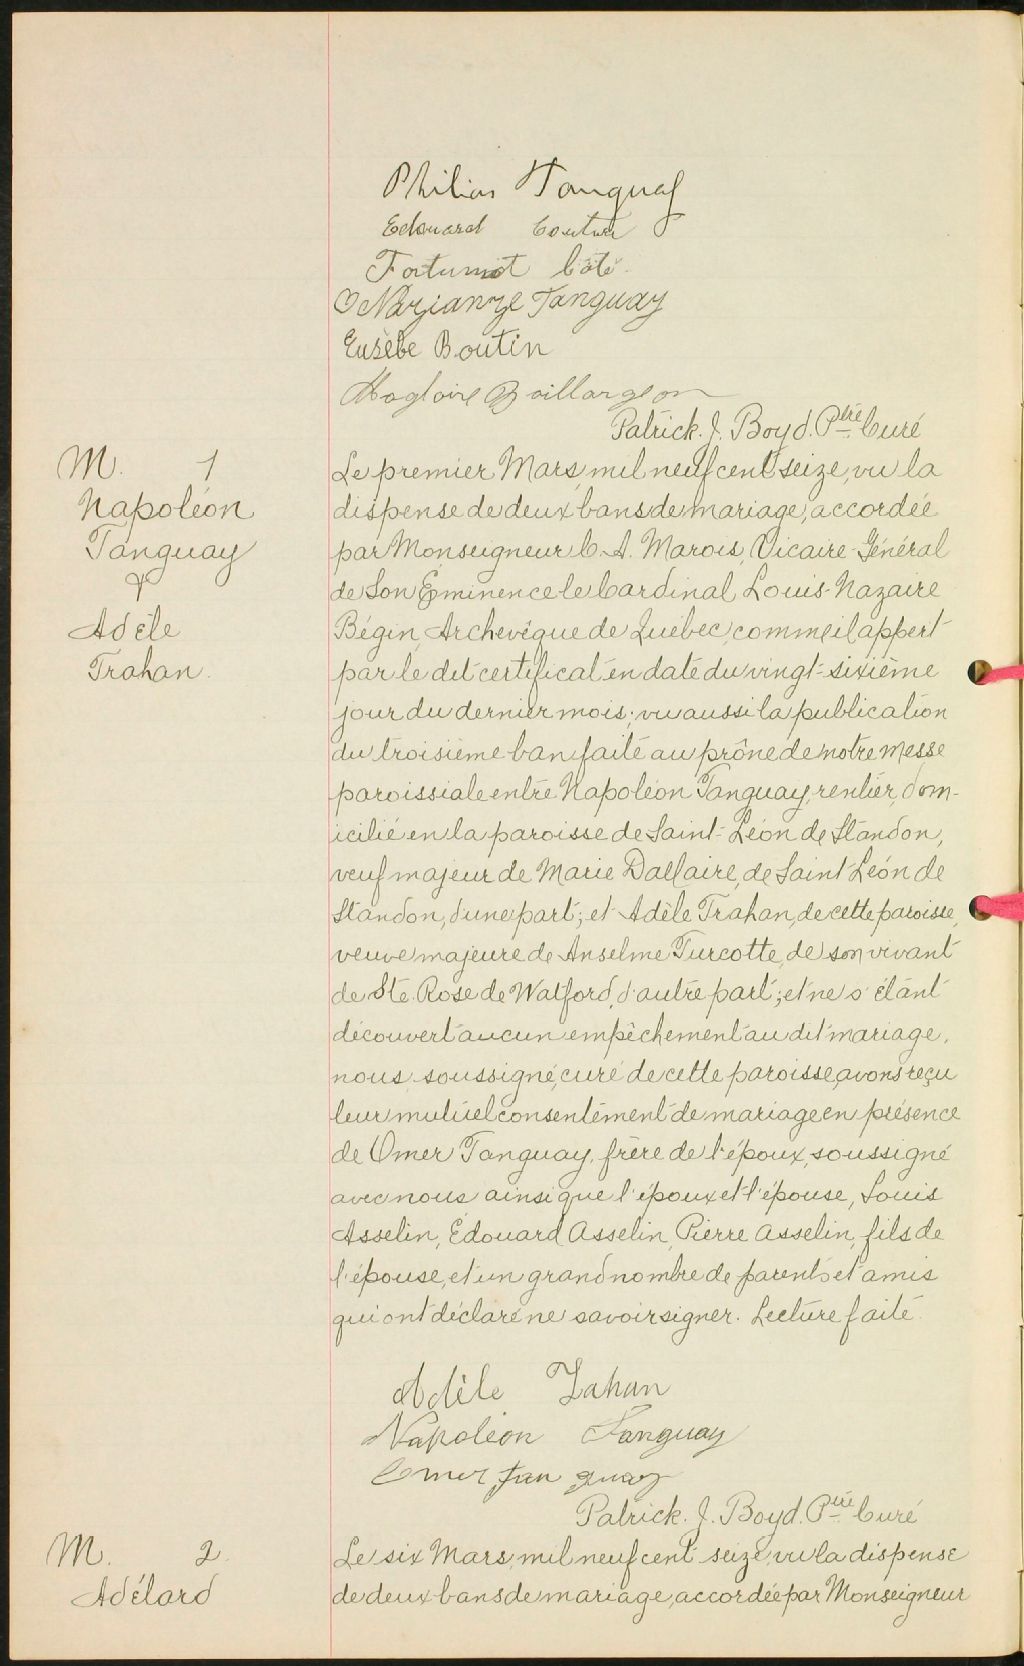 Philias Tanguay
Edouard Couture
Fortunat Côté
Tanguay
Eusèbe Boutin
Magloire Baillargeon
Patrick. J. Boyd. Ptre Curé
M. 1
Napoléon
Tanguay
&
Adèle
Trahan.
Le premier Mars, mil neuf cent seize, vu la
dispense de deux bans de mariage, accordée
par Monseigneur C. A. Marois, Vicaire-Général
de Son Eminence le Cardinal Louis-Nazaire
Bégin, Archevêque de Québec, comme il appert
par le dit certificat en date du vingt-sixième
jour du dernier mois; vu aussi la publication
du troisième ban faite au prône de notre messe
paroissiale entre Napoléon Tanguay, rentier, dom-
icilié en la paroisse de Saint-Léon de Standon,
veuf majeur de Marie Dallaire, de Saint Léon de
Standon, d'une part; et Adèle Trahan, de cette paroisse,
veuve majeure de Anselme Turcotte, de son vivant
de Ste. Rose de Watford, d'autre part; et ne s'étant
découvert aucun empêchement au dit mariage,
nous, soussigné, curé de cette paroisse, avons reçu
leur mutuel consentement de mariage en présence
de Omer Tanguay, frère de l'époux, soussigné
avec nous ainsi que l'époux et l'épouse, Louis
Asselin, Édouard Asselin, Pierre Asselin, fils de
l'épouse, et un grand nombre de parents et amis
qui ont déclaré ne savoir signer. Lecture faite.
Adèle Tahan
Napoléon Tanguay
Omer Tanguay
Patrick. J. Boyd. Ptre Curé
M. 2.
Adélard
Le six Mars, mil neuf cent seize, vu la dispense
de deux bans de mariage, accordée par Monseigneur